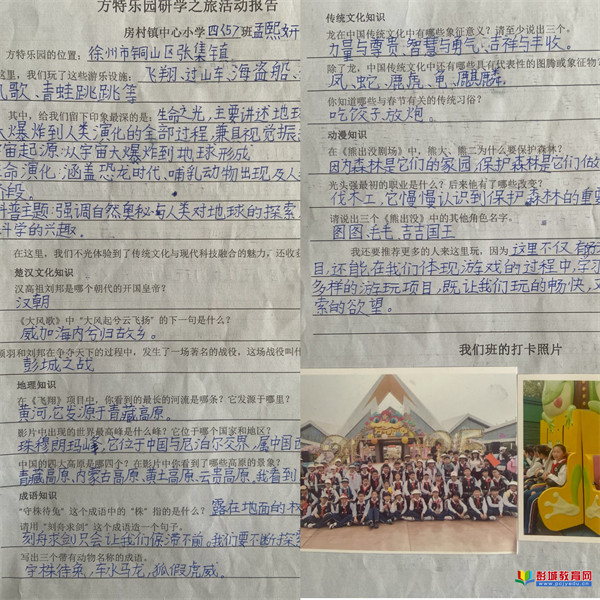 方特乐园研学之旅活动报告
房村镇中心小学四(5)7班孟熙妍
方特乐园的位置：徐州市铜山区张集镇
这里，我们玩了这些游乐设施：飞翔、过山车、海盗船、
凯歌、青蛙跳跳等
其中，给我们留下印象最深的是：生命之光，主要讲述地球
大爆炸到人类演化的全部过程，兼具视觉振
宇宙起源：从宇宙大爆炸到地球形成
命演化：涵盖恐龙时代、哺乳动物出现及人
阶段。
科普主题：强调自然奥秘与人类对地球的探索
科学的兴趣。
在这里，我们不光体验到了传统文化与现代科技融合的魅力，还收获
楚汉文化知识
汉高祖刘邦是哪个朝代的开国皇帝？
汉朝
《大风歌》中“大风起兮云飞扬”的下一句是什么？
威加海内兮归故乡。
项羽和刘邦在争夺天下的过程中，发生了一场著名的战役，这场战役叫什
彭城之战
地理知识
在《飞翔》项目中，你看到的最长的河流是哪条？它发源于哪里？
黄河，它发源于青藏高原。
影片中出现的世界最高峰是什么峰？它位于哪个国家和地区？
珠穆朗玛峰，它位于中国与尼泊尔交界，属中国西
中国的四大高原是哪四个？在影片中你看到了哪些高原的景象？
青藏高原、内蒙古高原、黄土高原、云贵高原，我看到
成语知识
“守株待兔”这个成语中的“株”指的是什么？露在地面的木
请用“刻舟求剑”这个成语造一个句子。
刻舟求剑只会让我们停滞不前。我们要不断探索
写出三个带有动物名称的成语。
守株待兔，车水马龙，狐假虎威。
传统文化知识
龙在中国传统文化中有哪些象征意义？请至少说出三个。
力量与尊贵、智慧与勇气、吉祥与丰收。
除了龙，中国传统文化中还有哪些具有代表性的图腾或象征物？
凤、蛇、鹿虎、龟、麒麟。
你知道哪些与春节有关的传统习俗？
吃饺子、放炮。
动漫知识
在《熊出没剧场》中，熊大、熊二为什么要保护森林？
因为森林是它们的家园，保护森林是它们做
光头强最初的职业是什么？后来他有了哪些改变？
伐木工，它慢慢认识到保护森林的重要
请说出三个《熊出没》中的其他角色名字。
图图、毛毛、吉吉国王
我还要推荐更多的人来这里玩，因为这里不仅有
目，还能在我们体现游戏的过程中，学习
多样的游玩项目，既让我们玩的畅快，又
索的欲望。
我们班的打卡照片
彭城教育网
www.pcjyedu.cn